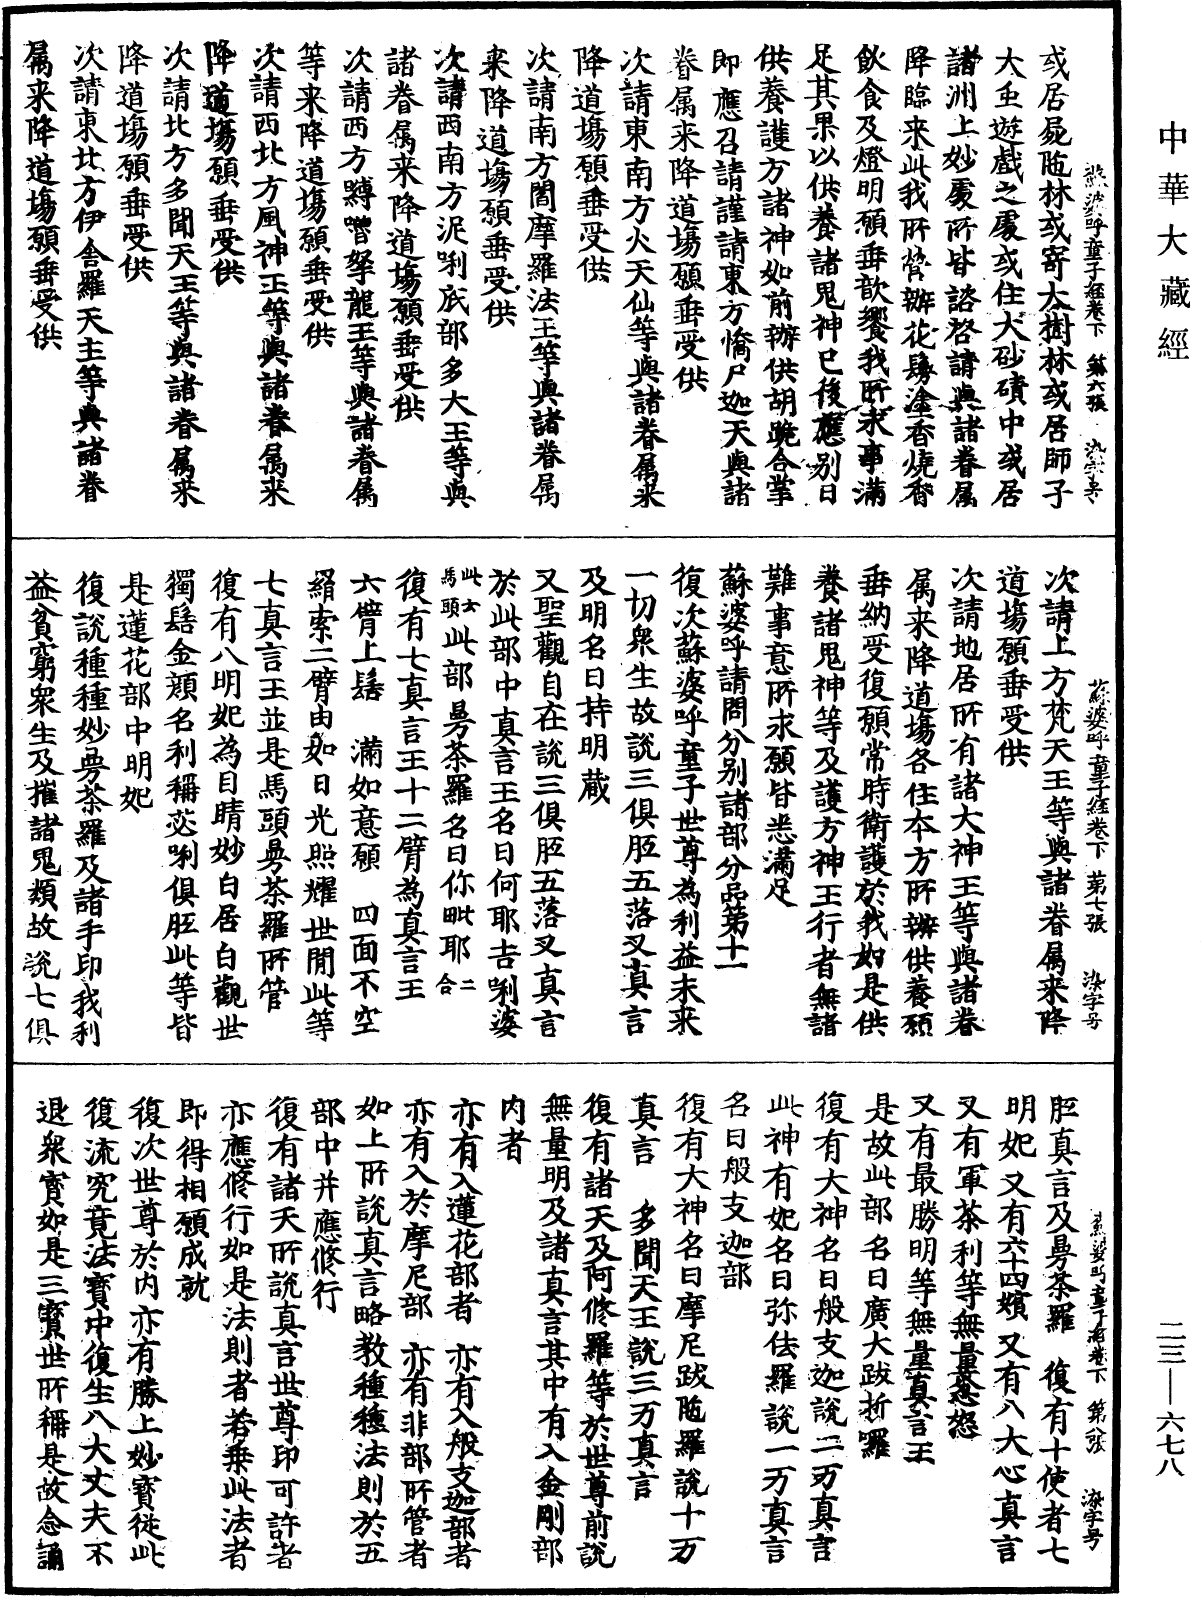 中華大藏經
二三—六七八
蘇婆呼童子經卷下 第六張 染字号
或居屍陁林或寄大樹林或居師子
大虫遊戲之處或住大砂磧中或居
諸洲上妙處所皆諮啓請與諸眷属
降臨来此我所營辦花鬘塗香燒香
飲食及燈明願垂歆饗我所求事滿
足其果以供養諸鬼神已後應別日
供養護方諸神如前辦供胡跪合掌
即應召請謹請東方憍尸迦天與諸
眷属来降道場願垂受供
次請東南方火天仙等與諸眷属来
降道場願垂受供
次請南方閻摩羅法王等與諸眷属
来降道場願垂受供
次請西南方泥唎底部多大王等與
諸眷属来降道場願垂受供
次請西方嚩嚕拏龍王等與諸眷属
等来降道場願垂受供
次請西北方風神王等與諸眷属来
降道場願垂受供
次請北方多聞天王等與諸眷属来
降道場願垂受供
次請東北方伊舍羅天主等與諸眷
属来降道場願垂受供
蘇婆呼童子經卷下 第七張 染字号
次請上方梵天王等與諸眷属来降
道場願垂受供
次請地居所有諸大神王等與諸眷
属来降道場各住本方所辦供養願
垂納受復願常時衛護於我如是供
養諸鬼神等及護方神王行者無諸
難事意所求願皆悉滿足
蘇婆呼請問分別諸部分品第十一
復次蘇婆呼童子世尊為利益未来
一切衆生故說三俱胝五落叉真言
及明名曰持明藏
又聖觀自在說三俱胝五落叉真言
於此部中真言王名曰何耶吉唎婆
此云馬頭此部曼茶羅名曰你毗耶二合
復有七真言王十二臂為真言王
六臂上髻 滿如意願 四面不空
羂索二臂由如日光照耀世間此等
七真言王並是馬頭曼茶羅所管
復有八明妃為目睛妙白居白觀世
獨髻金顔名利稱苾唎俱胝此等皆
是蓮花部中明妃
復說種種妙曼茶羅及諸手印我利
益貧窮衆生及摧諸鬼類故說七俱
蘇婆呼童子經卷下 第八張 染字号
胝真言及曼茶羅 復有十使者七
明妃 又有六十四嬪 又有八大心真言
又有軍茶利等無量忿怒
又有最勝明等無量真言王
是故此部名曰廣大跋折羅
復有大神名曰般支迦說二万真言
此神有妃名曰弥佉羅說一万真言
名曰般支迦部
復有大神名曰摩尼跋陁羅說十万
真言 多聞天王說三万真言
復有諸天及阿修羅等於世尊前說
無量明及諸真言其中有入金剛部
内者
亦有入蓮花部者 亦有入般支迦部者
亦有入於摩尼部 亦有非部所管者
如上所說真言略教種種法則於五
部中并應修行
復有諸天所說真言世尊印可許者
亦應修行如是法則者若乗此法者
即得相願成就
復次世尊於内亦有勝上妙寳從此
復流究竟法寳中復生八大丈夫不
退衆寳如是三寳世所稱是故念誦